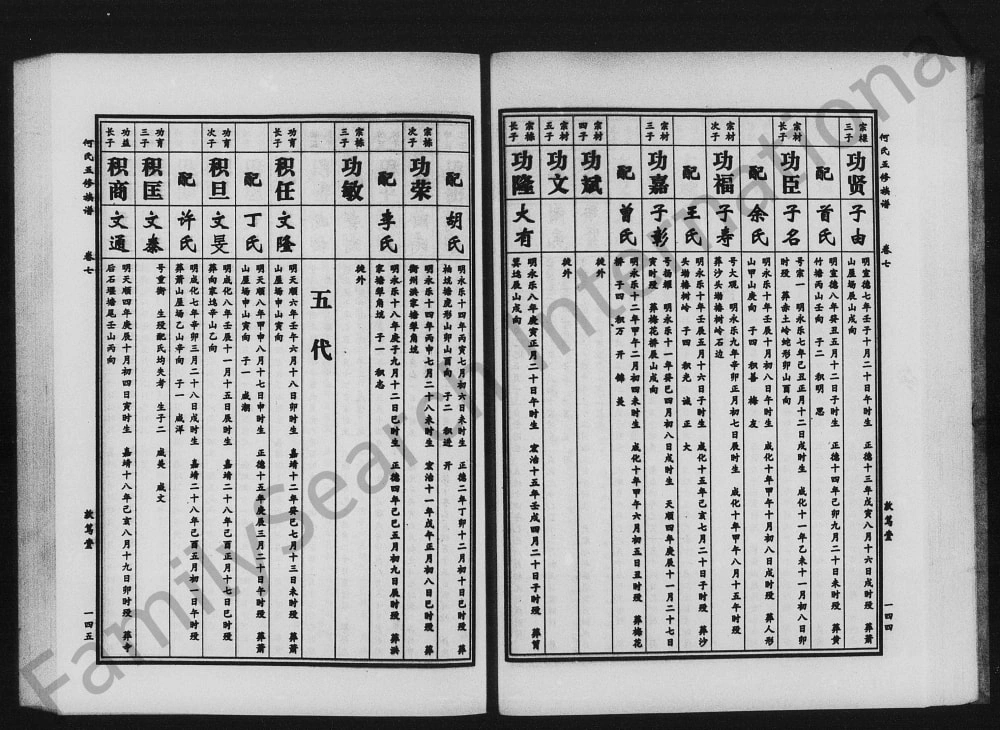 何氏五修族谱
卷七
敦笃堂
一四四
宗棣三子
功贤
子由
明宣德七年壬子十月二十日午时生 正德十三年戊寅八月十六日戌时殁 葬萧
山屋场辰山戌向
配
首氏
明宣德八年癸丑五月十二日子时生 正德十四年己卯九月二十日未时殁 葬黄
竹塘丙山壬向 子二 积明 思
宗材长子
功臣
子名
号素一 明永乐七年己丑正月十二日戌时生 成化十一年乙未十一月初八日卯
时殁 葬赤土岭蛇形卯山酉向
配
余氏
明永乐十年壬辰十月初八日午时生 成化十年甲午十月初八日戌时殁 葬人形
山甲山庚向 子四 积善 梅 友
宗材次子
功福
子寿
号大观 明永乐九年辛卯正月初七日辰时生 成化十年甲午八月十五年时殁
葬沙头塝椿树岭石边
配
王氏
明永乐十年壬辰五月十六日子时生 成化十五年己亥七月二十日子时殁 葬沙
头塝椿树岭 子四 积光 诚 正 大
宗材三子
功嘉
子彰
号扬耀 明永乐十一年癸巳四月初八日戌时生 天顺四年庚辰十一月二十七日
寅时殁 葬梅花桥辰山戌向
配
曾氏
明永乐十二年甲午二月初四未时生 成化十年甲午六月初五日丑时殁 葬梅花
桥 子四 积万 开 锦 美
宗材四子
功斌
徙外
宗材五子
功文
徙外
宗栋长子
功隆
大有
明永乐八年庚寅正月二十日午时生 宏治十五年壬戌四月二十日子时殁 葬筲
箕坞辰山戌向
配
胡氏
明永乐十四年丙寅七月初六日未时生 正德二年丁卯十二月初十日巳时殁 葬
柚坑塘虎形山卯山酉向 子二 积进 升
宗栋次子
功荣
明永乐十四年丙申七月二十八未时生 宏治十一年戊午正月初八日巳时殁 葬
衡州洪家塘犁角坑
配
李氏
明永乐十八年庚子九月十二日巳时生 正德四年己巳五月初九日辰时殁 葬洪
家塘犁角坑 子一 积志
宗栋三子
功敏
徙外
五代
功育长子
积任
文隆
明天顺六年壬午六月十八日卯时生 嘉靖十二年癸巳七月十三日未时殁 葬萧
山屋场申山寅向
配
丁氏
明天顺八年甲申八月十七日申时生 正德十五年庚辰三月二十日午时殁 葬萧
山屋场申山寅向 子一 咸潮
功育次子
积旦
文旻
明成化八年壬辰十一月十五日辰时生 嘉靖二十八年己酉正月十七日巳时殁
葬向家坞辛山乙向
配
许氏
明成化七年辛卯三月二十八日戌时生 嘉靖二十八年己酉五月初一日午时殁
葬萧山屋场乙山辛向 子一 咸洋
功育三子
积匡
文泰
号重衡 生殁配氏均失考 生子二 咸美 咸文
功益长子
积商
文通
明天顺四年庚辰十月初四日寅时生 嘉靖十八年己亥八月十九日卯时殁 葬寺
后石堰塘尾壬山丙向
何氏五修族谱
卷七
敦笃堂
一四五
FamilySearch International